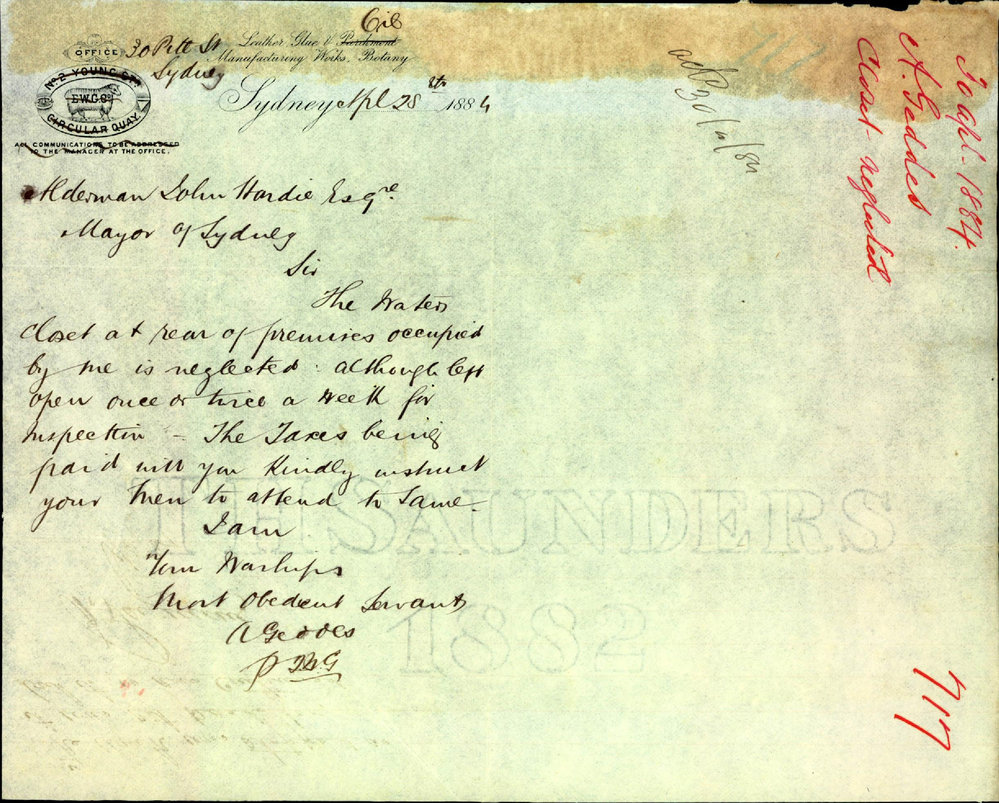 OFFICE 30 Pitt St
Sydney
Oil
Leather Glue & Parchment
Manufacturing Works, Botany
No 2 YOUNG ST
E.W.G & Co
CIRCULAR QUAY
ALL COMMUNICATIONS TO BE ADDRESSED
TO THE MANAGER AT THE OFFICE.
Sydney Apl 28th 1884
Alderman John Hardie Esqre
Mayor of Sydney
Sir
The Water
Closet at rear of premises occupied
by me is neglected: although left
open once or twice a week for
inspection - The Taxes being
paid will you Kindly instruct
your men to attend to Same -
I am
Your Warships
Most Obedient Servant
A Geddes
30 apl. 1884.
A. Geddes
Closet neglected
717
TH SAUNDERS
1882